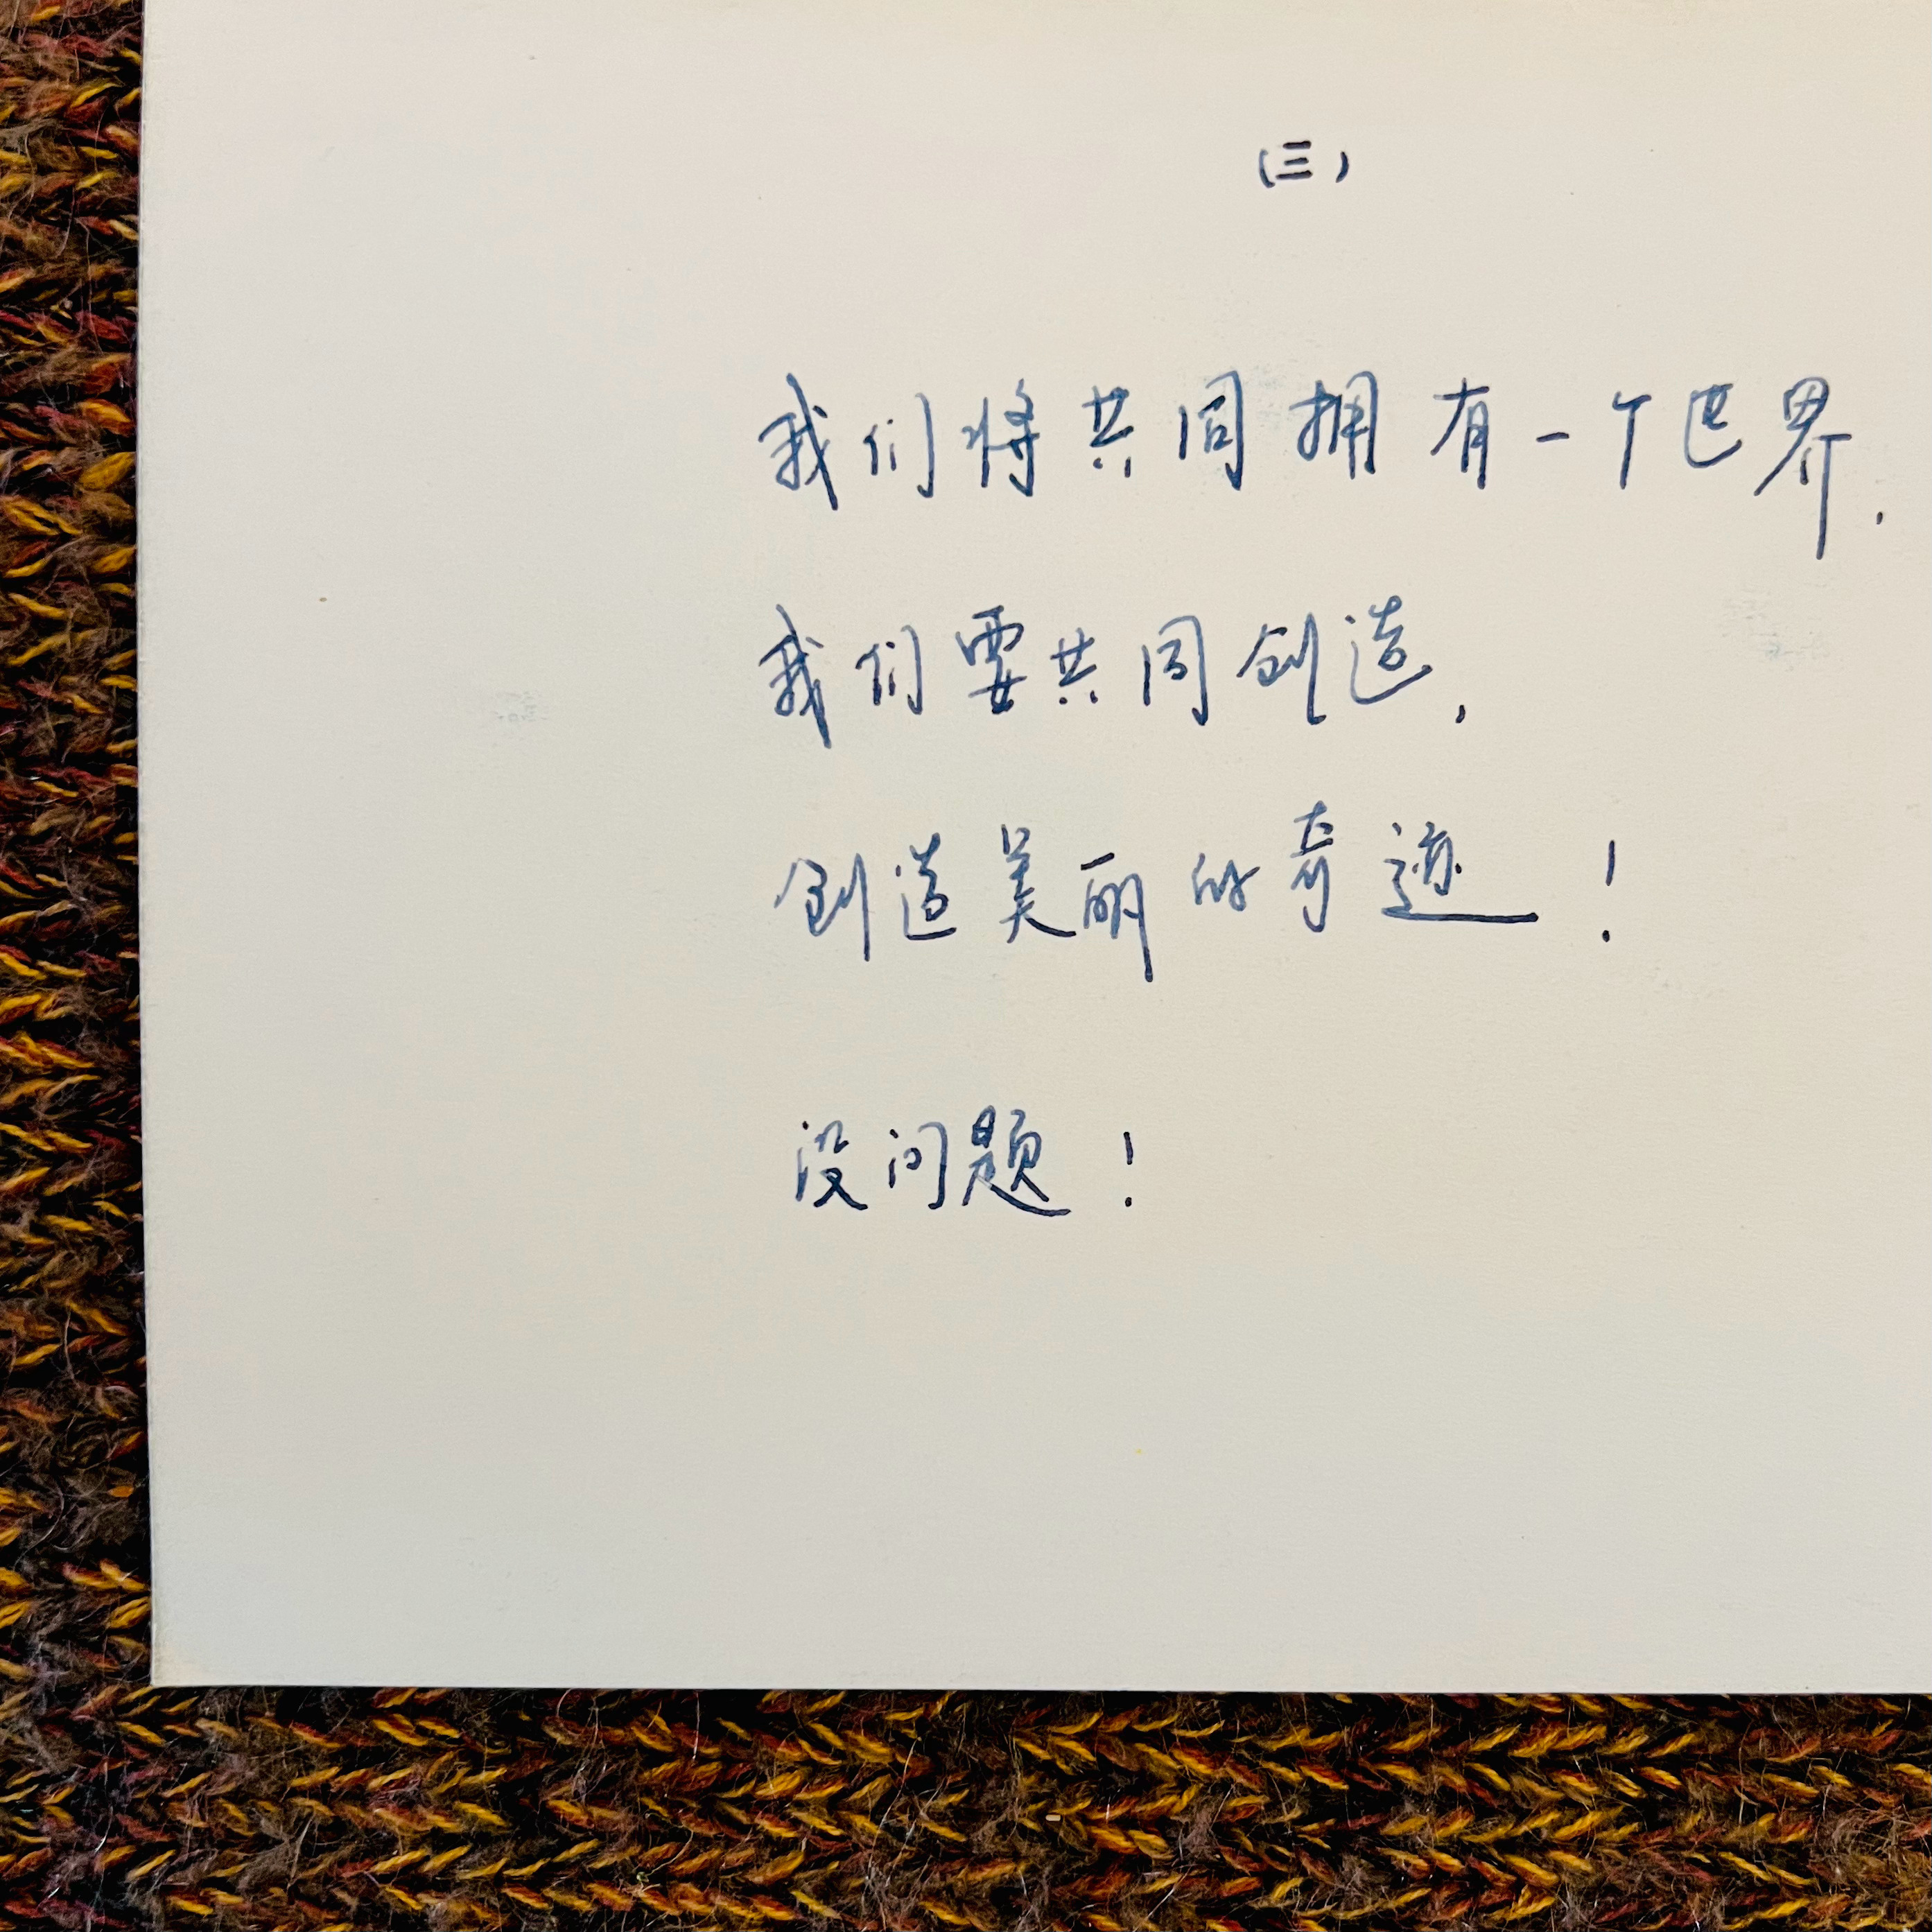 （三）
我们将共同拥有一个世界，
我们要共同创造，
创造美丽的奇迹！
没问题！